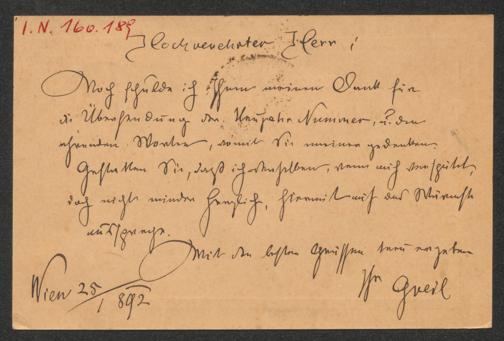 I. N. 160.189
Hochverehrter Herr!
Noch schulde ich Ihnen meinen Dank für
die Übersendung der Neujahrs Nummer, u. den
ehrenden Worten, womit Sie meiner gedenken.
Gestatten Sie, daß ich denselben, wenn auch verspätet,
doch nicht minder herzlich, hiermit auf das Wärmste
ausspreche.
Mit den besten Grüssen treu ergeben
Ihr Greil
Wien 25/ 892